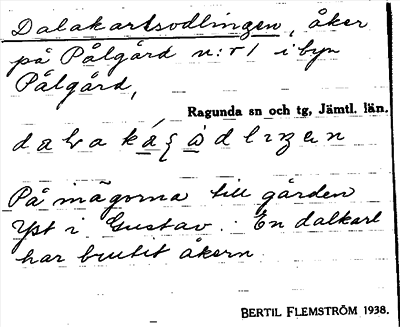 Dalakartsodlingen, åker
på Pålgård n:r 1 i byn
Pålgård,
Ragunda sn och tg, Jämtl. län.
På mägorna till gården
Yst i Gustav. En dalkarl
har brutit åkern.
BERTIL FLEMSTRÖM 1938.